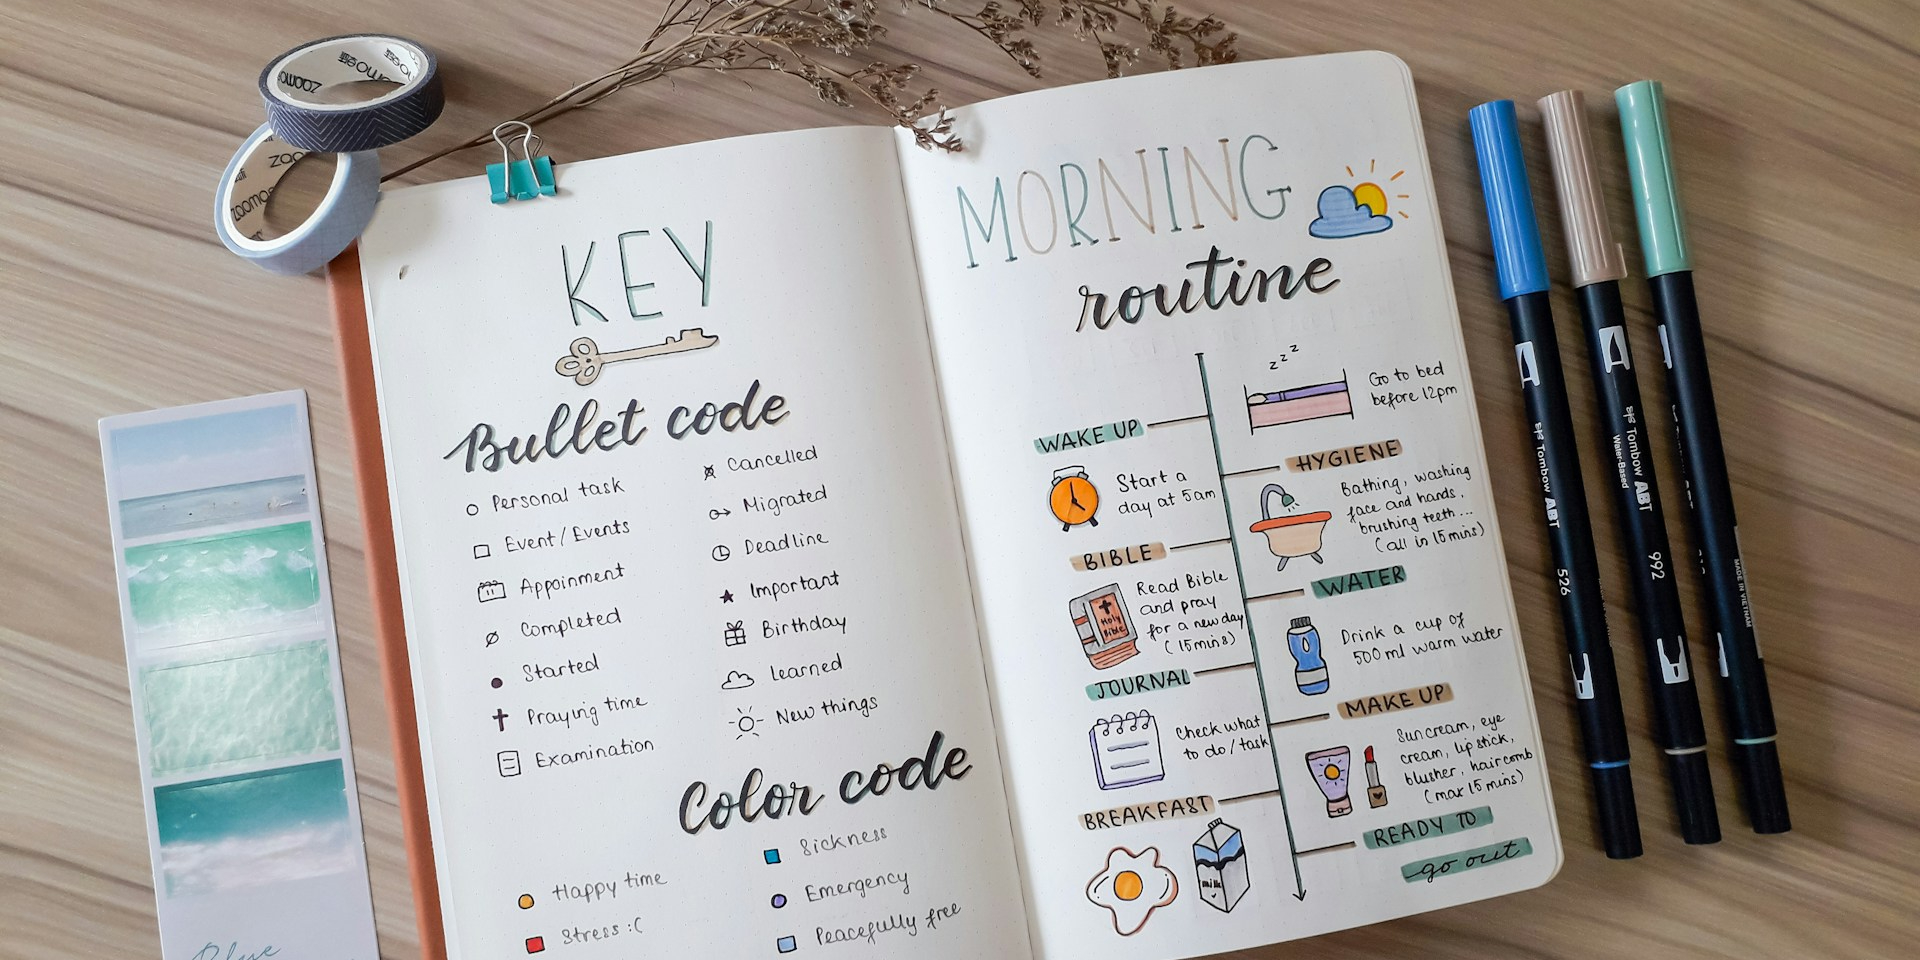 zoomoest
zoomo
KEY
Bullet code
Personal task
Event / Events
Appoinment
Completed
Started
Praying time
Examination
Cancelled
Migrated
Deadline
Important
Birthday
Learned
New things
Color code
Happy time
Stress :(
Sickness
Emergency
Peacefully free
MORNING
routine
zzz
Go to bed
before 12pm
WAKE UP
Start a
day at 5am
HYGIENE
Bathing, washing
face and hands,
brushing teeth...
(all in 15 mins)
BIBLE
Holy
Bible
Read Bible
and pray
for a new day
(15mins)
WATER
Drink a cup of
500 ml warm water
JOURNAL
Check what
to do / task
MAKE UP
Sun cream, eye
cream, lip stick,
blusher, hair comb
(max 15 mins)
BREAKFAST
milk
READY TO
go out
Blue
Tombow ABT
526
Tombow ABT
Water-Based
992
MADE IN VIETNAM